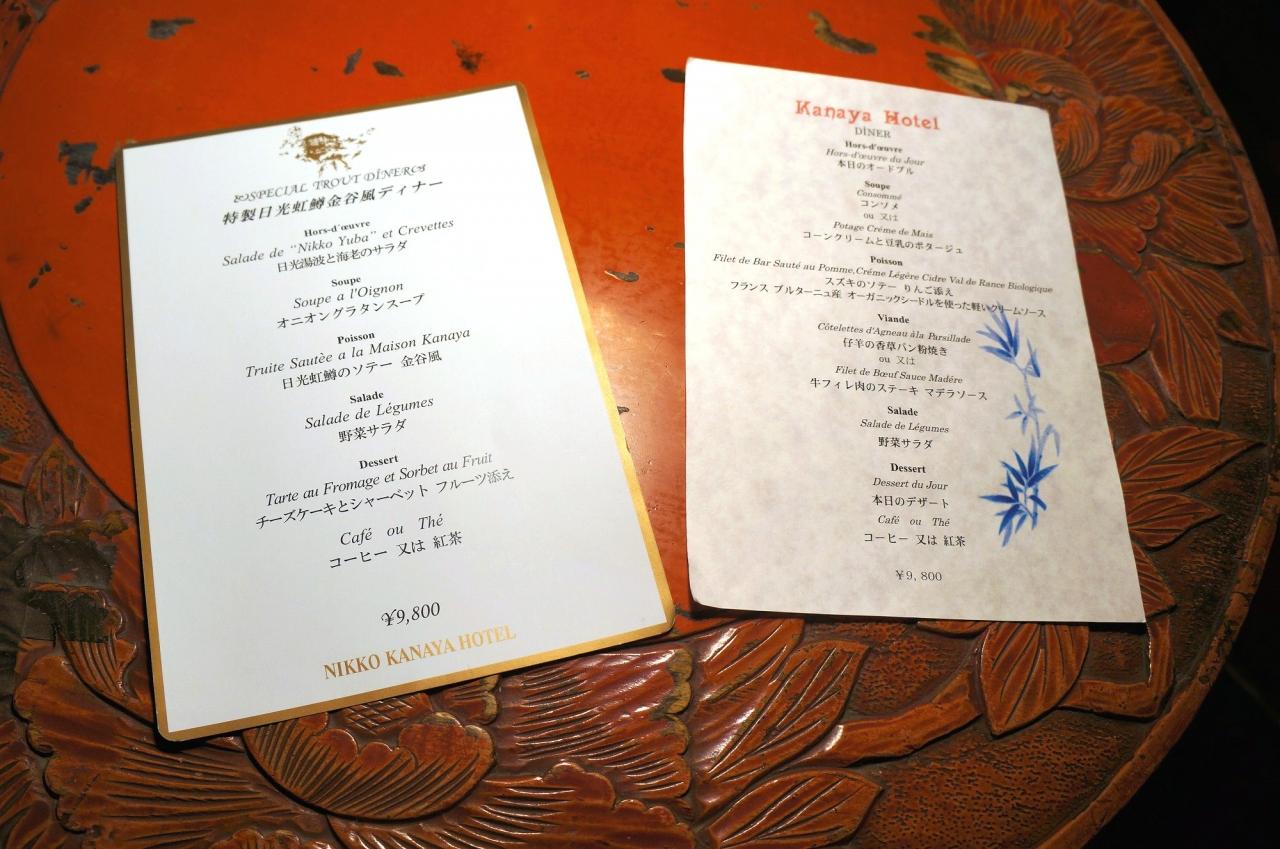 SPECIAL TROUT DÎNER
特製日光虹鱒金谷風ディナー
Hors-d'œuvre
Salade de "Nikko Yuba" et Crevettes
日光湯波と海老のサラダ
Soupe
Soupe a l'Oignon
オニオングラタンスープ
Poisson
Truite Sautèe a la Maison Kanaya
日光虹鱒のソテー 金谷風
Salade
Salade de Légumes
野菜サラダ
Dessert
Tarte au Fromage et Sorbet au Fruit
チーズケーキとシャーベット フルーツ添え
Café ou Thé
コーヒー 又は 紅茶
¥9,800
NIKKO KANAYA HOTEL
Kanaya Hotel
DÎNER
Hors-d'œuvre
Hors-d'œuvre du Jour
本日のオードブル
Soupe
Consommé
コンソメ
ou 又は
Potage Créme de Mais
コーンクリームと豆乳のポタージュ
Poisson
Filet de Bar Sauté au Pomme,Créme Légère Cidre Val de Rance Biologique
スズキのソテー りんご添え
フランス ブルターニュ産 オーガニックシードルを使った軽いクリームソース
Viande
Côtelettes d'Agneau àla Parsillade
仔羊の香草パン粉焼き
ou 又は
Filet de Bœuf Sauce Madére
牛フィレ肉のステーキ マデラソース
Salade
Salade de Légumes
野菜サラダ
Dessert
Dessert du Jour
本日のデザート
Café ou Thé
コーヒー 又は 紅茶
¥9,800